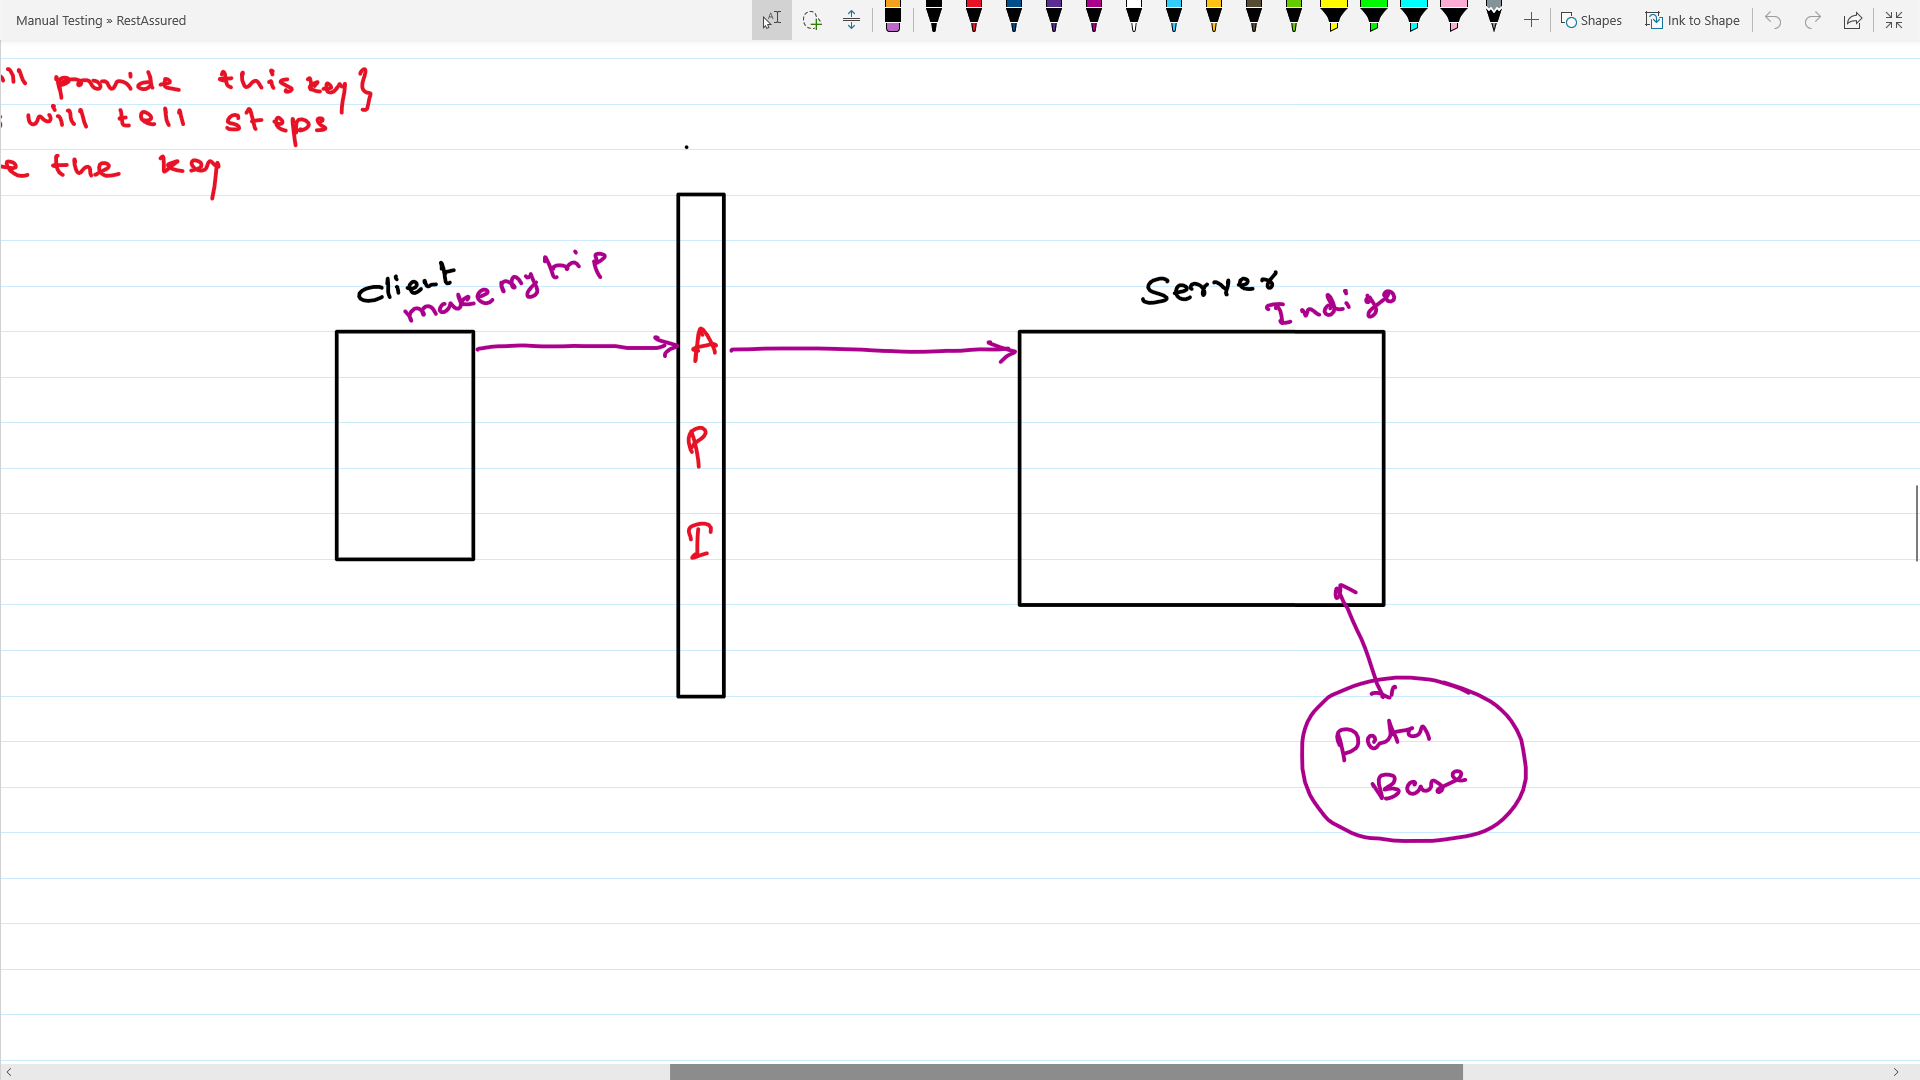 Manual Testing » RestAssured
Shapes
Ink to Shape
ill provide this key}
will tell steps
e the key
Client
make my trip
Server
Indigo
A
P
I
Data
Base